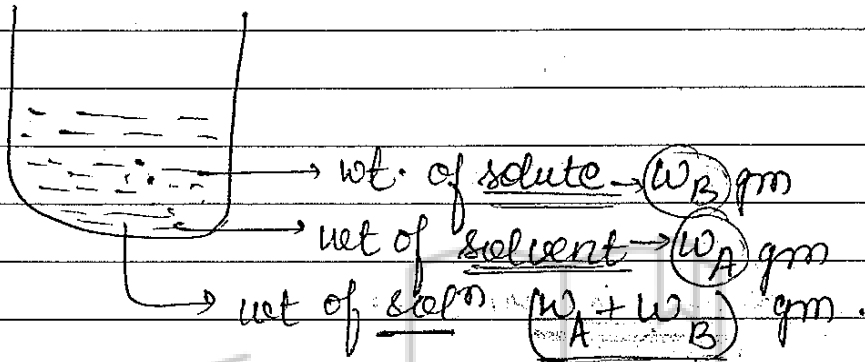 → wt. of solute → W_B gm
→ wet of solvent → W_A gm
→ wet of solⁿ (W_A + W_B) gm.